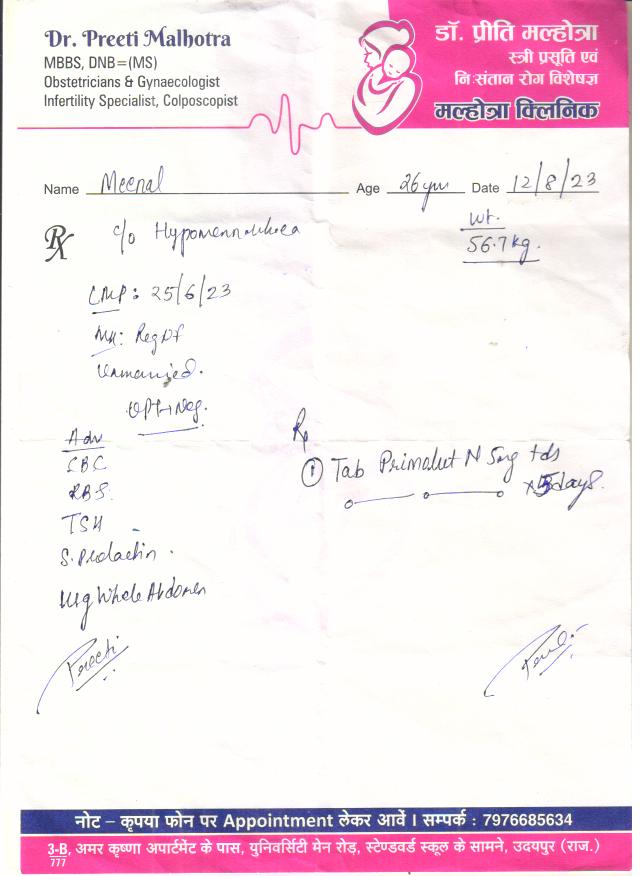 Dr. Preeti Malhotra
MBBS, DNB=(MS)
Obstetricians & Gynaecologist
Infertility Specialist, Colposcopist
डॉ. प्रीति मल्होत्रा
स्त्री प्रसूति एवं
निःसंतान रोग विशेषज्ञ
मल्होत्रा क्लिनिक
Name Meenal Age 26 yrs Date 12/8/23
Wt.
56.7kg.
Rx c/o
LMP: 25/6/23
MH:
Unmarried.
UPT → Neg.
Adv
CBC
RBS.
TSH
S. Prolactin.
Usg Whole Abdomen
Preeti
Rx
① Tab Primolut N 5mg tds
x 5 days.
नोट – कृपया फोन पर Appointment लेकर आवें । सम्पर्क : 7976685634
3-B, अमर कृष्णा अपार्टमेंट के पास, युनिवर्सिटी मेन रोड़, स्टेण्डवर्ड स्कूल के सामने, उदयपुर (राज.)
777